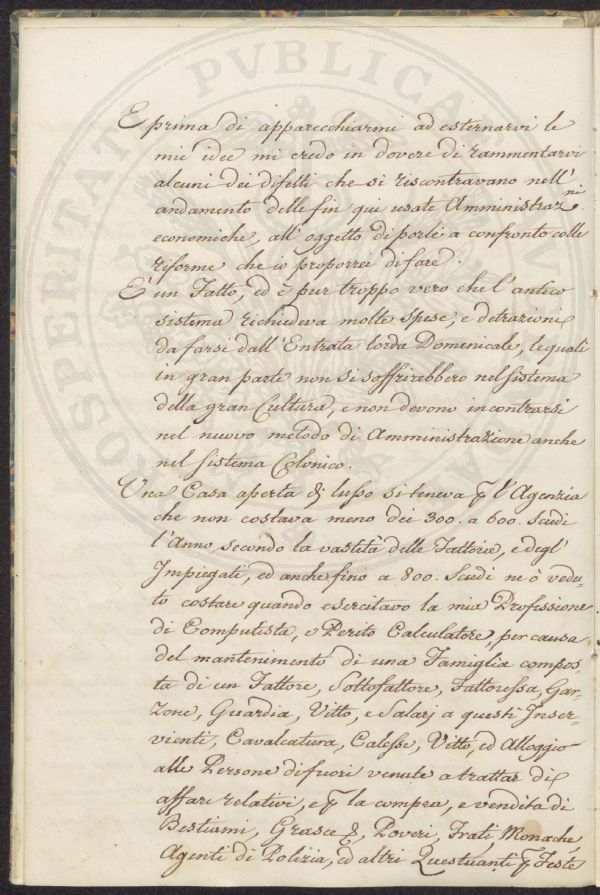 E prima di apparecchiarmi ad esternarvi le
mie idee mi credo in dovere di rammentarvi
alcuni dei difetti che si riscontravano nell'
andamento delle fin qui usate Amministraz.ni
economiche, all'oggetto di porle a confronto colle
riforme che io proporrei di fare.
E' un Fatto, ed è pur troppo vero che l'antico
sistema richiedeva molte spese, e detrazioni
da farsi dall'Entrata lorda Domenicale, le quali
in gran parte non si soffrirebbero nel sistema
della gran Cultura, e non devono incontrarsi
nel nuovo metodo di Amministrazione anche
nel sistema Colonico.
Una Casa aperta di lusso si teneva p l'Agenzia
che non costava meno dei 300. a 600. Scudi
l'Anno, secondo la vastità delle Fattorie, e degl'
Impiegati, ed anche fino a 800. Scudi ne ò vedu-
to costare quando esercitavo la mia Professione
di Computista, e Perito Calculatore, per causa
del mantenimento di una Famiglia compos-
ta di un Fattore, Sottofattore, Fattoressa, Gar-
zone, Guardia, Vitto, e Salarj a questi Inser-
vienti, Cavalcatura, Calesse, Vitto, ed Alloggio
alle Persone di fuori venute a trattar di
affari relativi, e p la compra, e vendita di
Bestiami, Grasce &, Poveri, Frati, Monache,
Agenti di Polizia, ed altri Questuanti p Feste
PROSPERITATI PVBLICAE